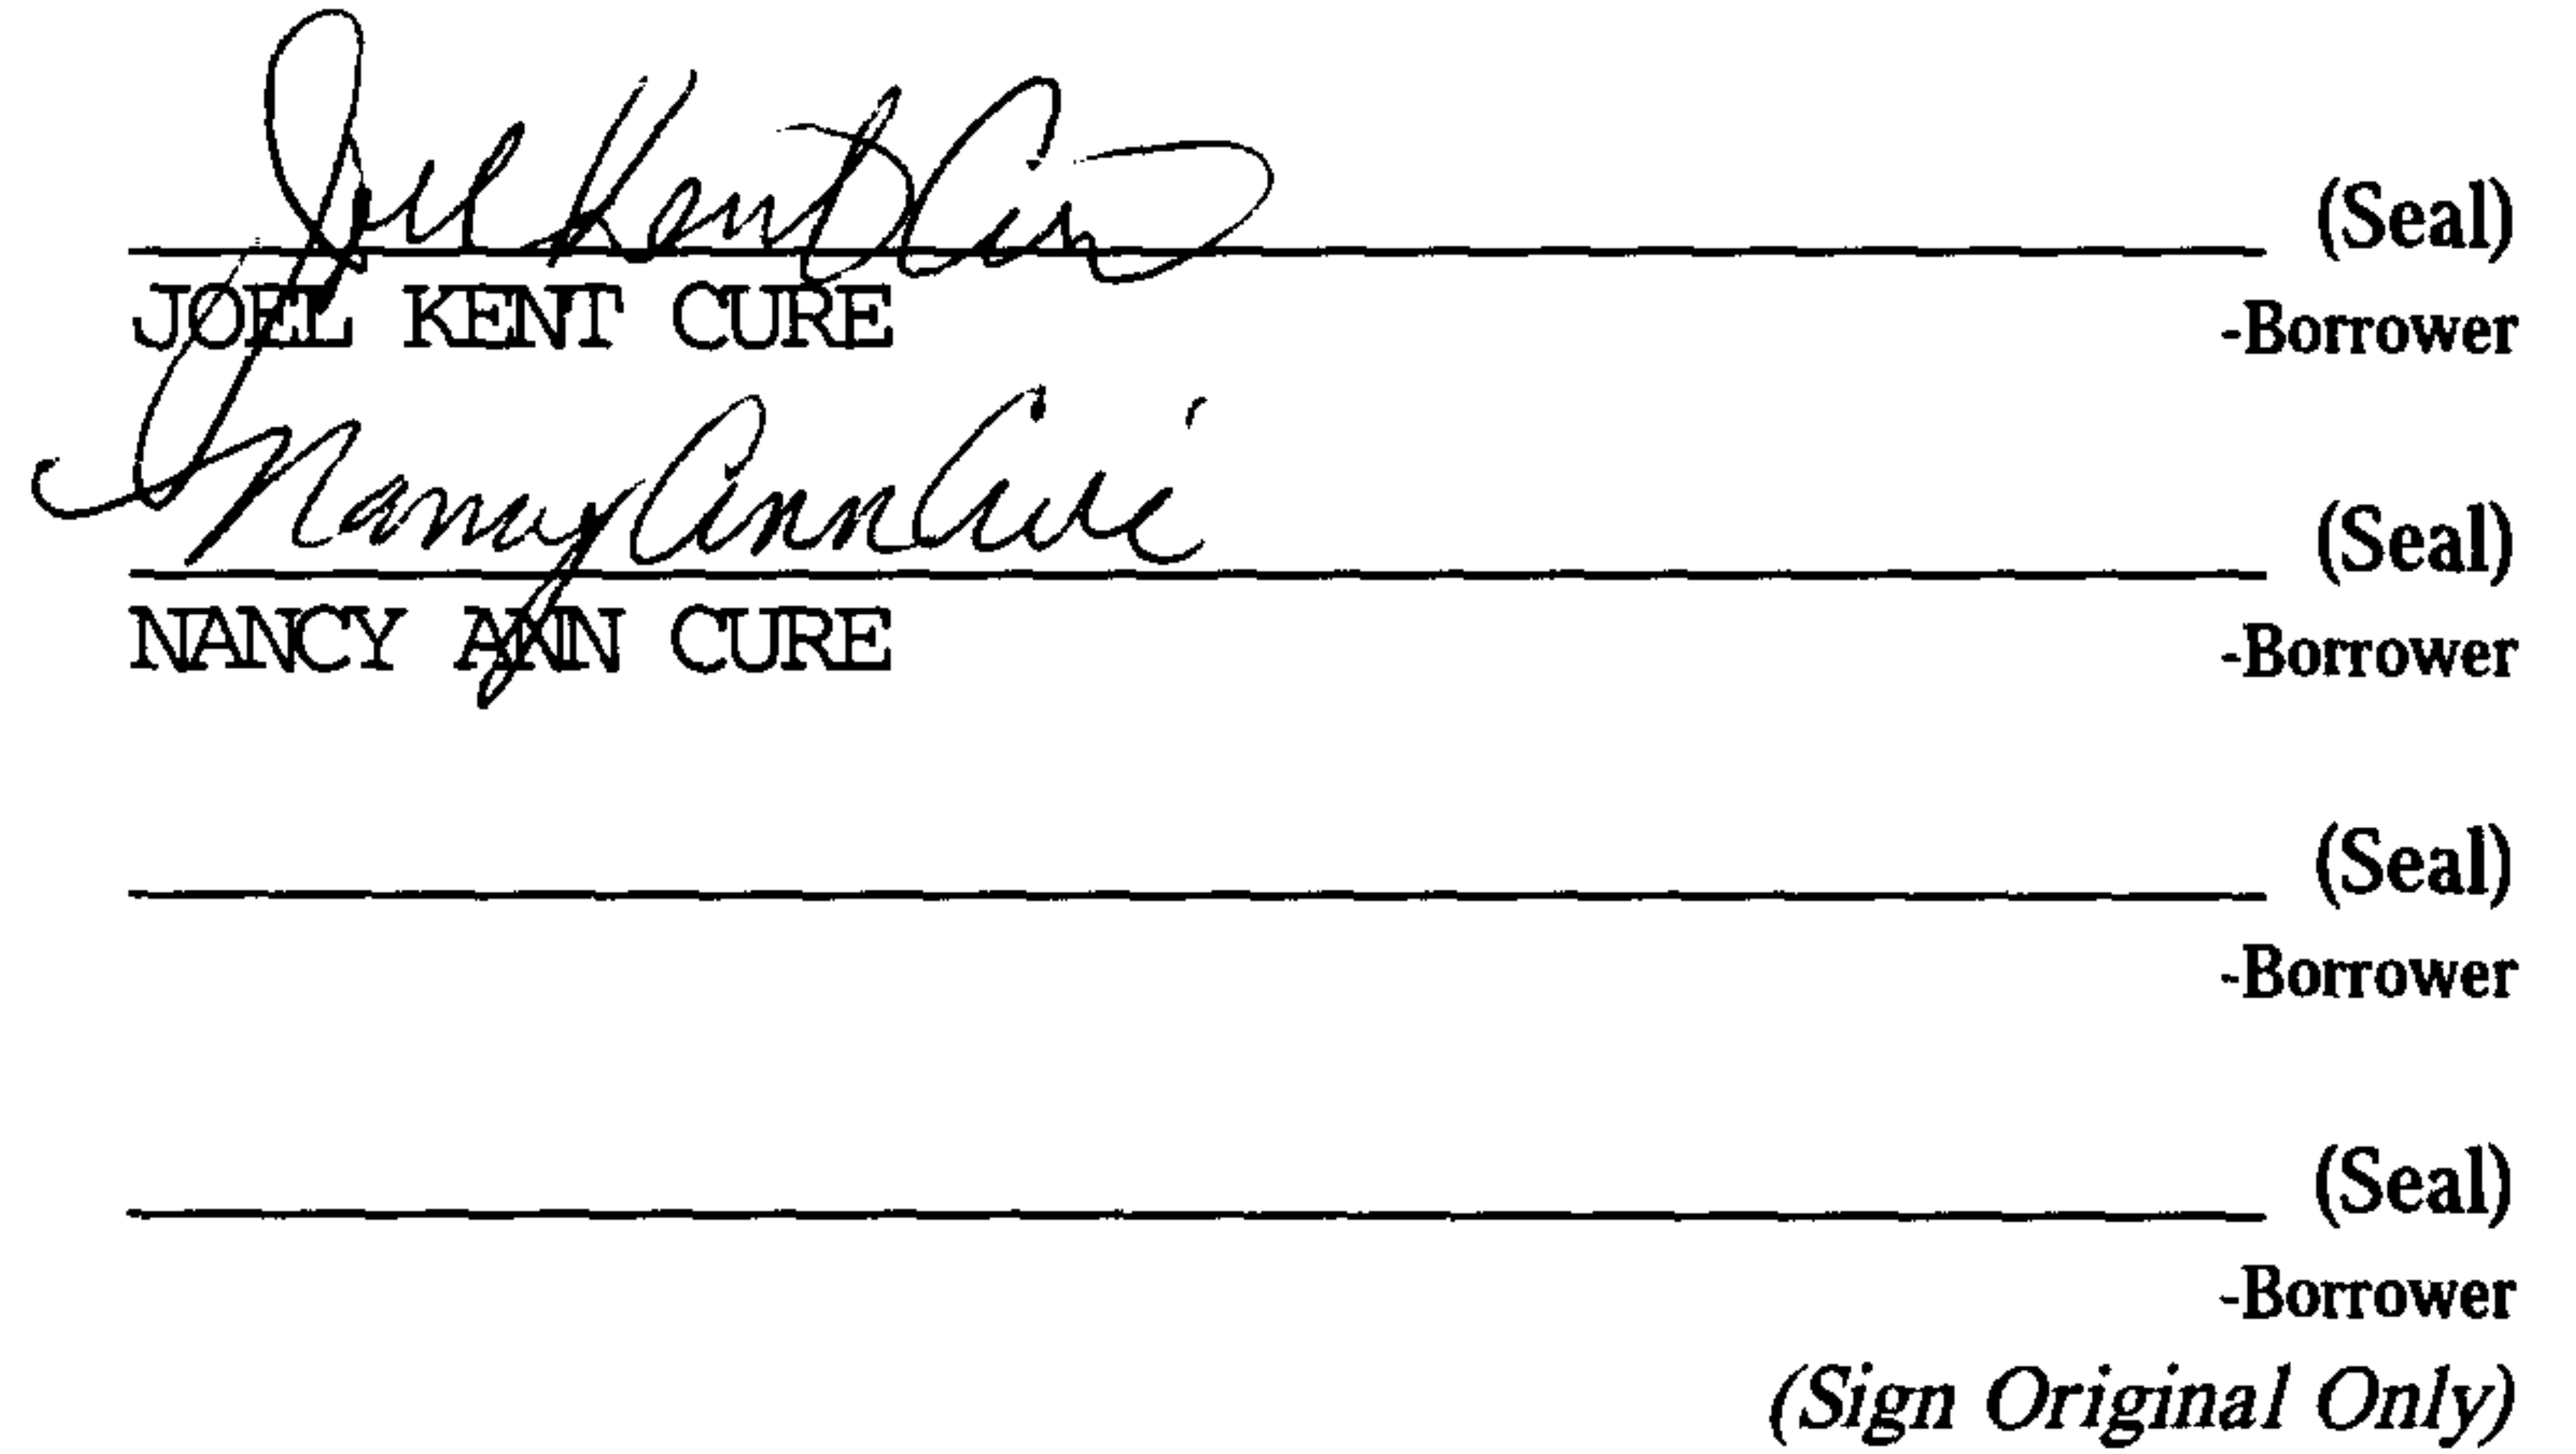 Joel Kent Cure (Seal)
JOEL KENT CURE -Borrower
Nancy Ann Cure (Seal)
NANCY ANN CURE -Borrower
(Seal)
-Borrower
(Seal)
-Borrower
(Sign Original Only)